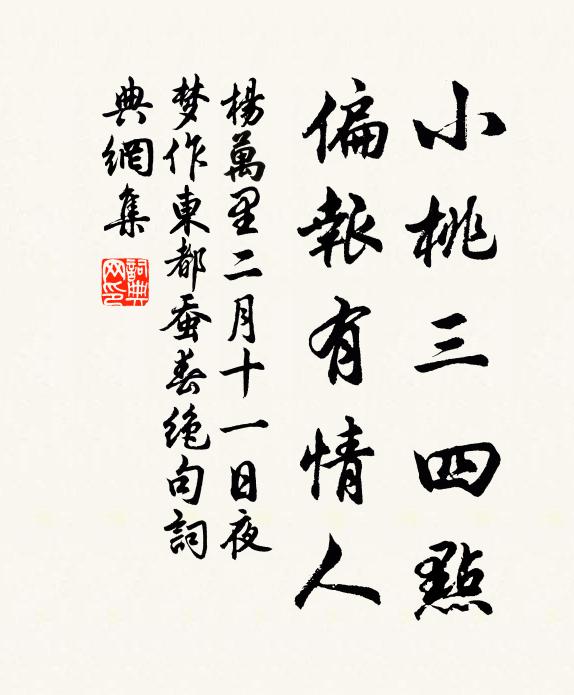 小桃三四點
偏報有情人
楊萬里二月十一日夜
梦作東都蚤春絶句詞
典網集
詞典
网印